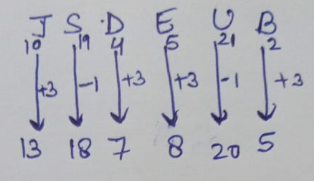 J S D E U B
10 19 4 5 21 2
+3 -1 +3 +3 -1 +3
13 18 7 8 20 5